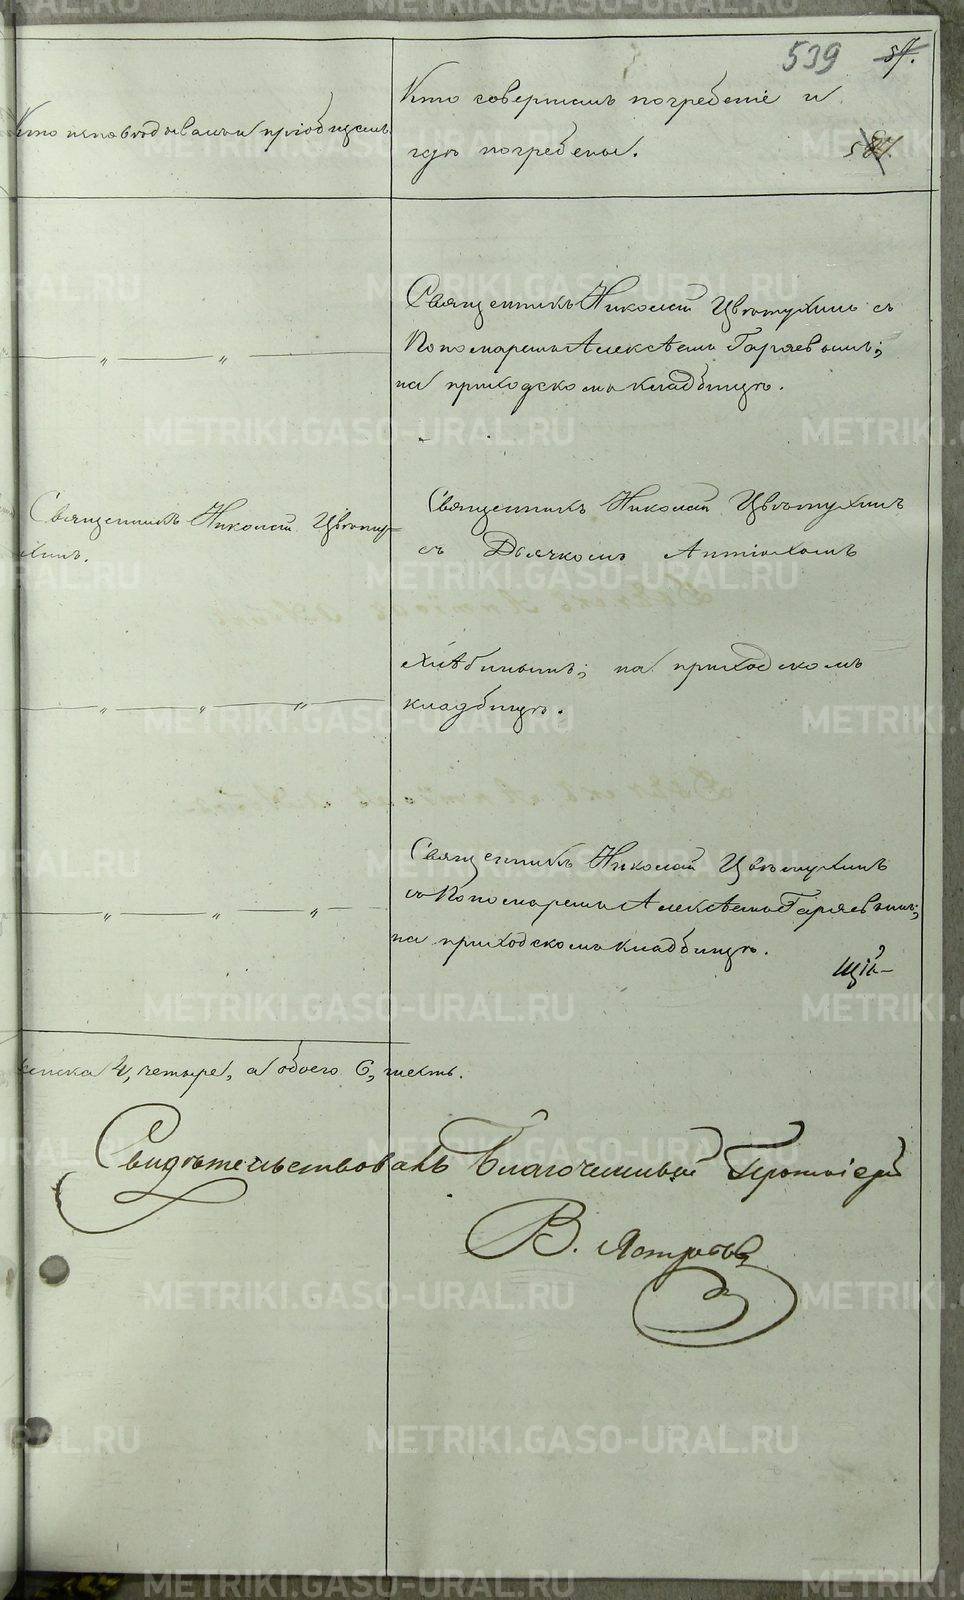 539 57.
587.
Кто исповѣдывалъ и пріобщалъ.
Кто совершалъ погребеніе и
гдѣ погребены.
Священникъ Николай Цвѣтухинъ съ
Пономаремъ Алексѣемъ Гаряевымъ;
на приходскомъ кладбищѣ.
Священникъ Николай Цвѣту-
хинъ.
Священникъ Николай Цвѣтухинъ
съ Дьячкомъ Антіохомъ
Хлѣбинымъ; на приходскомъ
кладбищѣ.
Священникъ Николай Цвѣтухинъ
съ Пономаремъ Алексѣемъ Гаряевымъ;
на приходскомъ кладбищѣ.
щій
женска 4, четыре, а обоего 6, шесть.
Свидѣтельствовалъ Благочинный Протоіерей
В.
METRIKI.GASO-URAL.RU